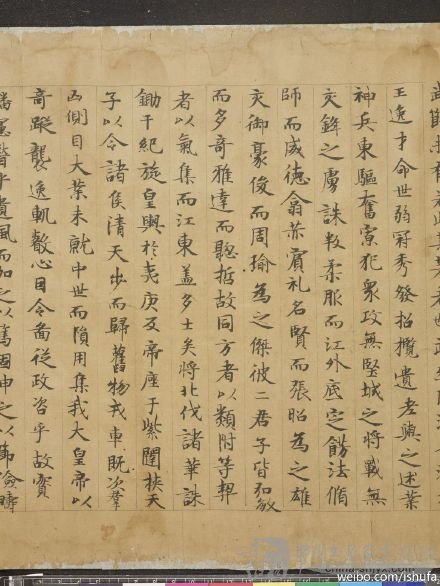 王逸才命世弱冠秀發招攬遺老與之述業
神兵東驅奮寡犯衆攻無堅城之將戰無
交鋒之虜誅叛柔服而江外底定飭法脩
師而威德翕赫賓礼名賢而張昭為之雄
交御豪俊而周瑜為之傑彼二君子皆弘敏
而多奇雅達而聡哲故同方者以類附等契
者以氣集而江東盖多士矣將北伐諸華誅
鋤干紀旋皇輿於夷庚反帝座于紫闥挾天
子以令諸侯清天步而歸舊物戎車既次羣
凶側目大業未就中世而隕用集我大皇帝以
奇蹤襲逸軌叡心因令圖從政咨乎故實
播憲稽乎遺風而加之以篤固申之以節儉疇
weibo.com/ishufa